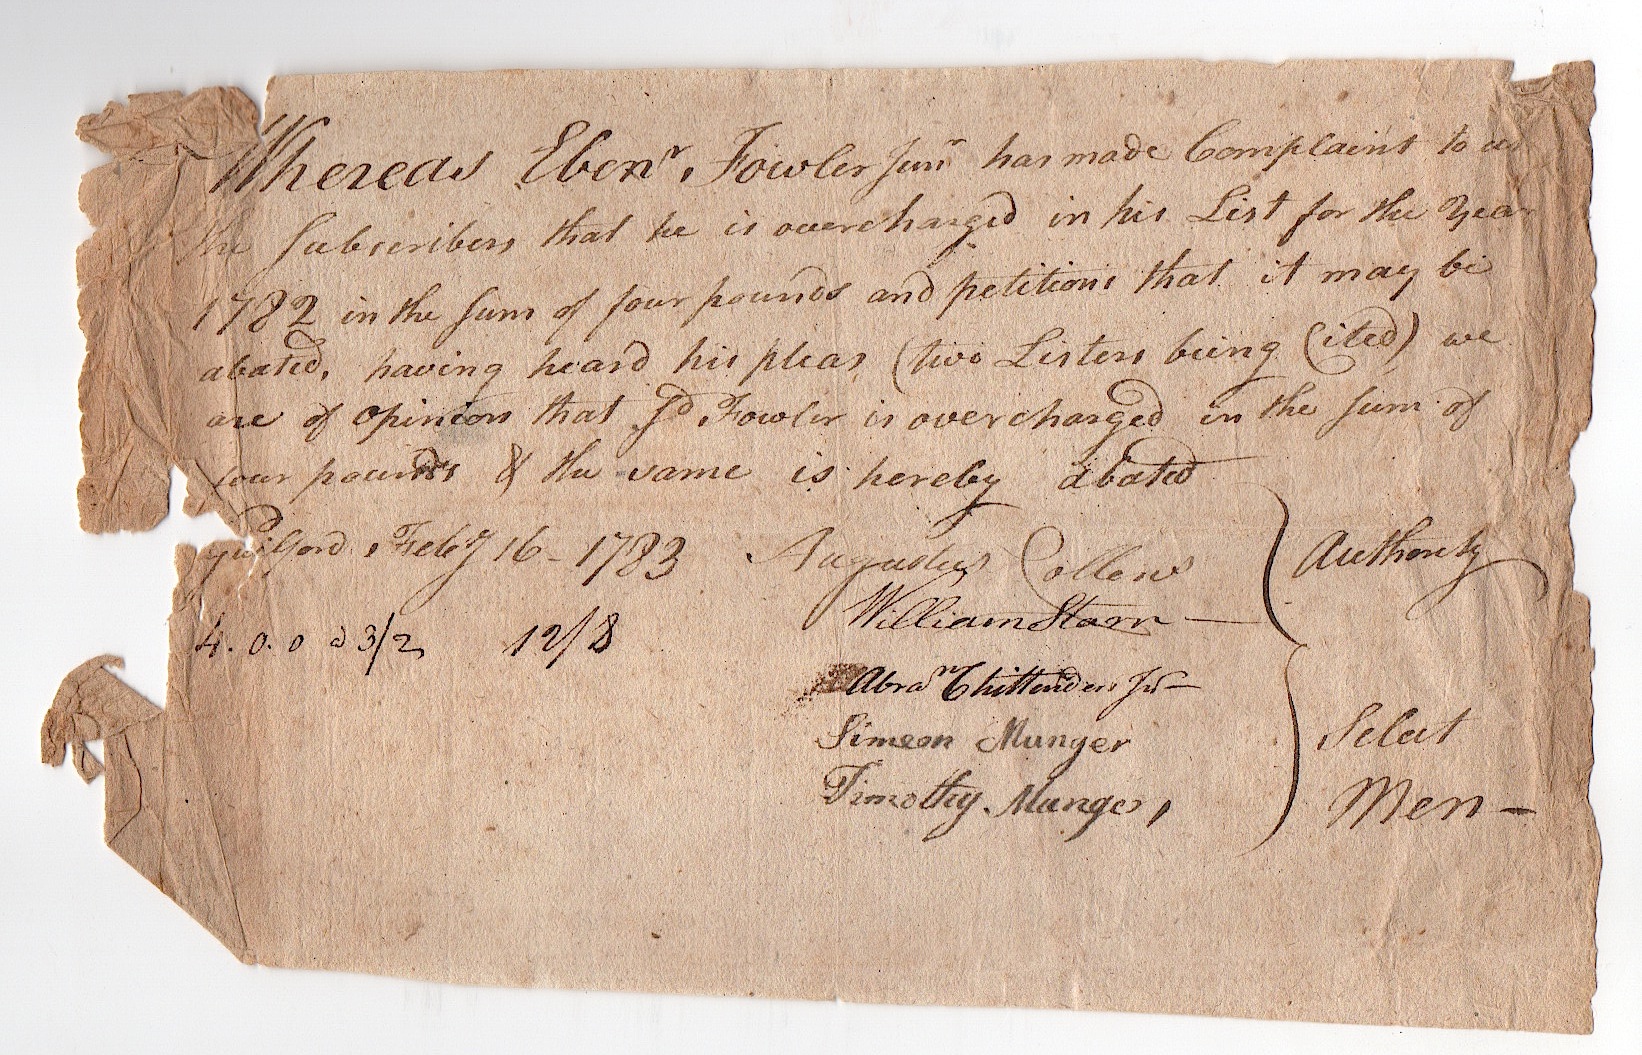 Whereas Ebenr. Fowler Junr has made Complaint to us
the Subscribers that he is overcharged in his List for the Year
1782 in the Sum of four pounds and petitions that it may be
abated, having heard his pleas (two Listers being Cited) we
are of opinion that Sd Fowler is overcharged in the Sum of
four pounds & the same is hereby abated
Guilford, Feby 16 - 1783 Augustus Collens
William Starr — Authority
4. 0. 0 a 3/2 12/8
Abram Chittenden Jr —
Simeon Munger Select
Timothy Munger, Men —